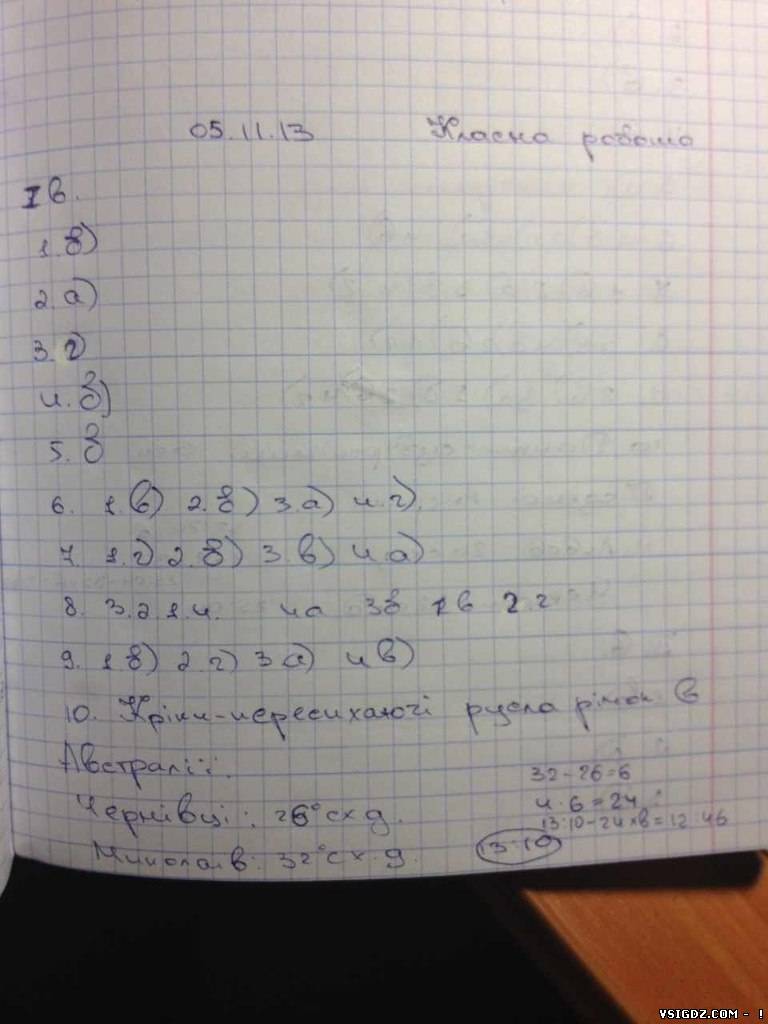 05.11.13 Класна робота
I в.
1. б)
2. а)
3. г)
4. б)
5. б
6. 1. в) 2. б) 3. а) 4. г).
7. 1. г) 2. б) 3. в) 4. а)
8. 3. 2 1. 4. 4а 3б 1в 2 г
9. 1. б) 2. г) 3. а) 4 в)
10. Кріки-пересихаючі русла річок в
Австралії.
Чернівці: 26° сх д.
Миколаїв: 32° сх. д.
32-26=6
4·6=24
13:10-24хв=12 46
13:10
VSIGDZ.COM - !